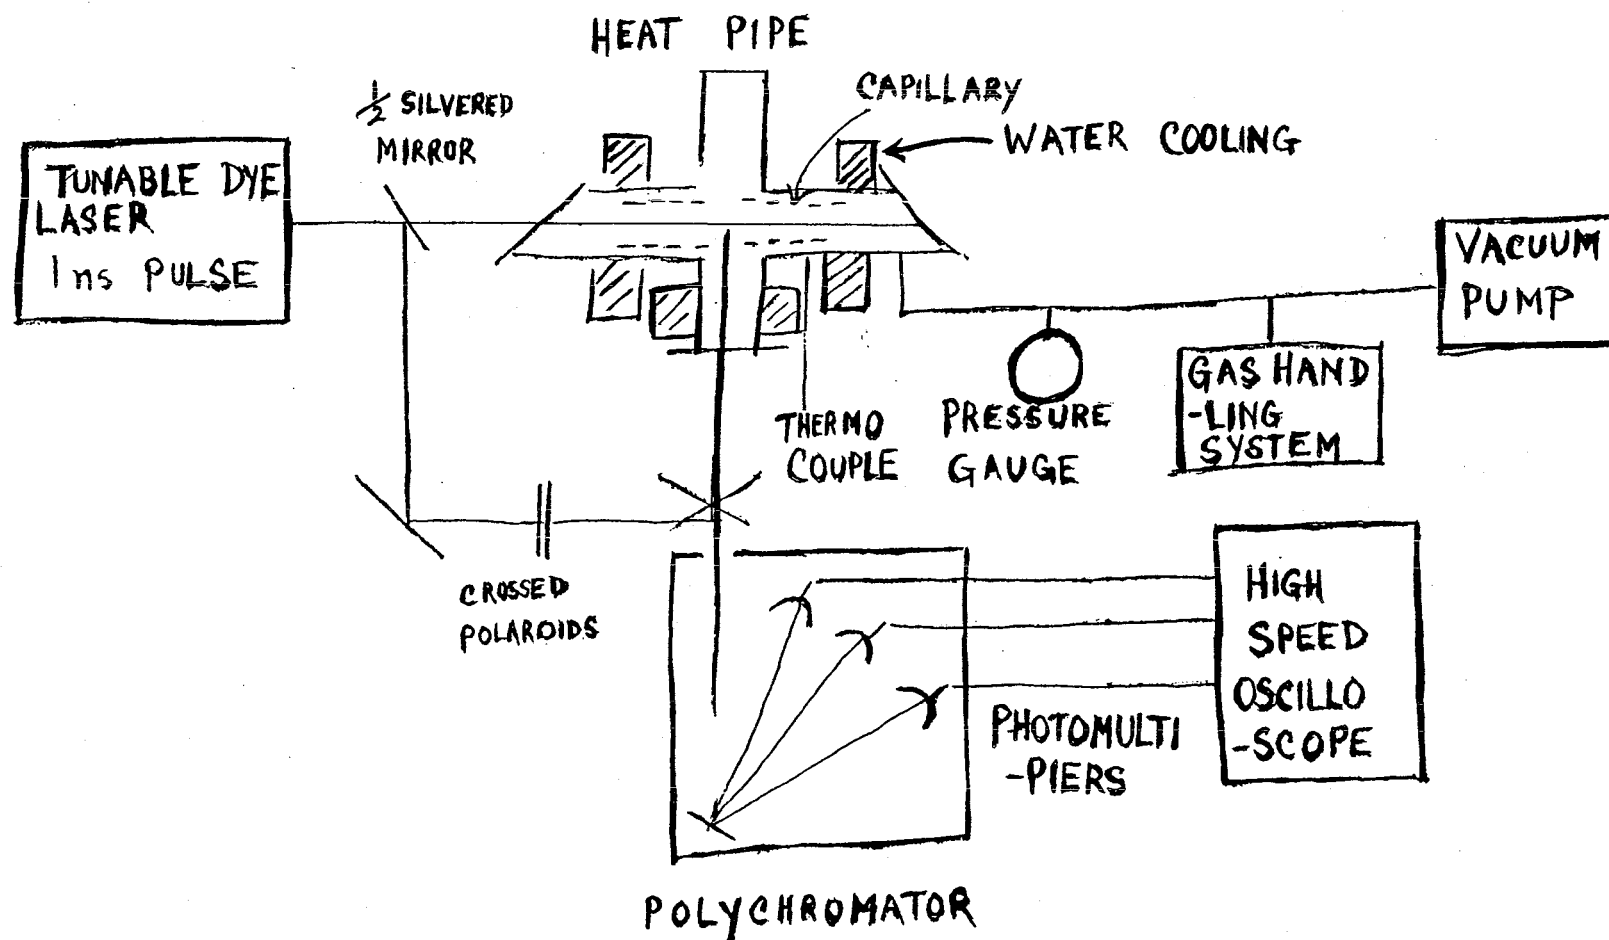 HEAT PIPE
½ SILVERED
MIRROR
CAPILLARY
WATER COOLING
TUNABLE DYE
LASER
1ns PULSE
VACUUM
PUMP
GAS HAND
-LING
SYSTEM
THERMO
COUPLE
PRESSURE
GAUGE
CROSSED
POLAROIDS
HIGH
SPEED
OSCILLO
-SCOPE
PHOTOMULTI
-PIERS
POLYCHROMATOR